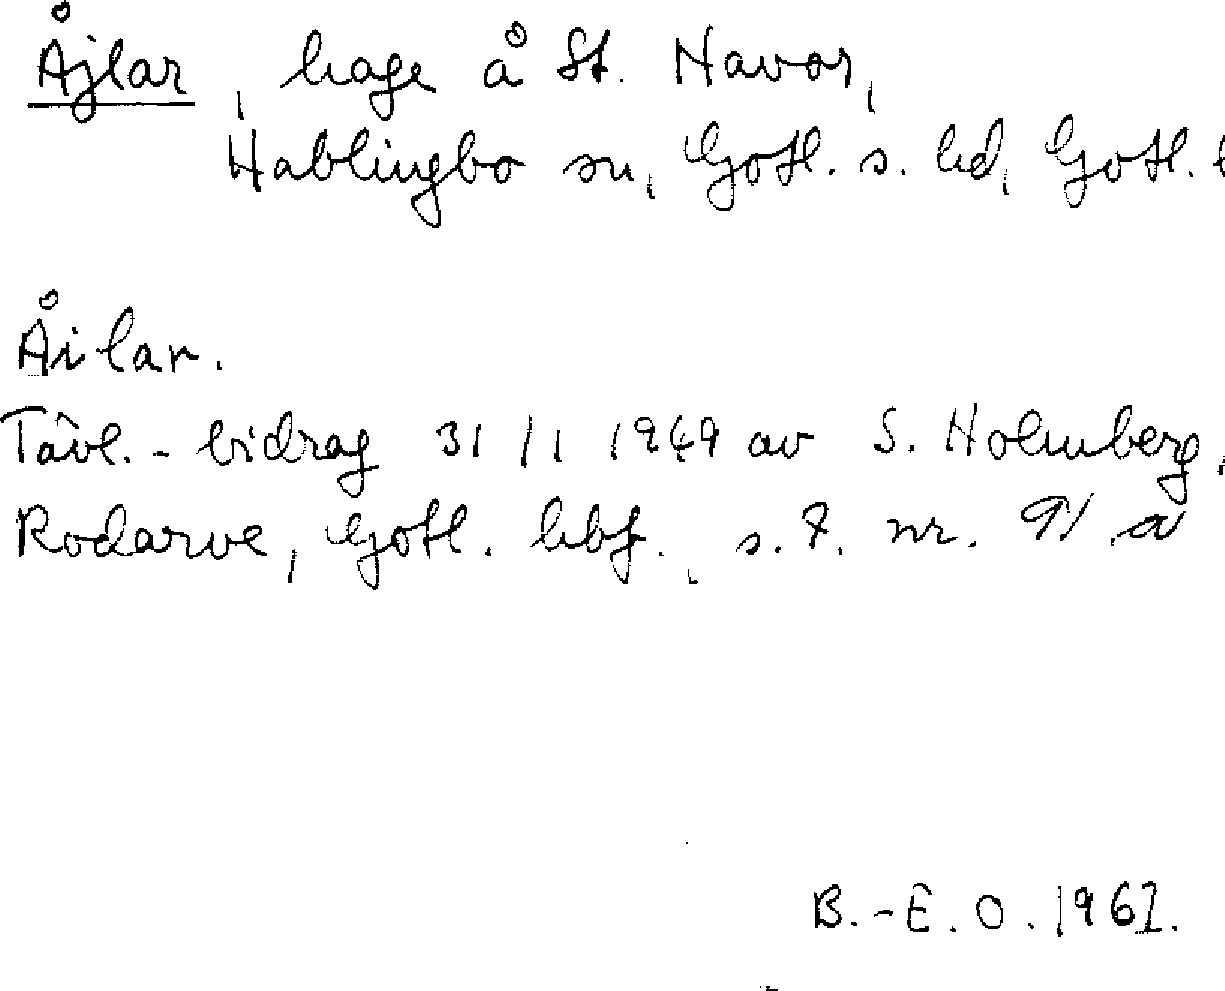 Åjlar, hage å St. Havor,
Hablingbo sn, Gotl. s. hd, Gotl.
Åilar.
Tävl.-bidrag 31/1 1949 av S. Holmberg,
Rodarve, Gotl. hbf., s. 7. nr. 91 a
B.-E. O. 1962.